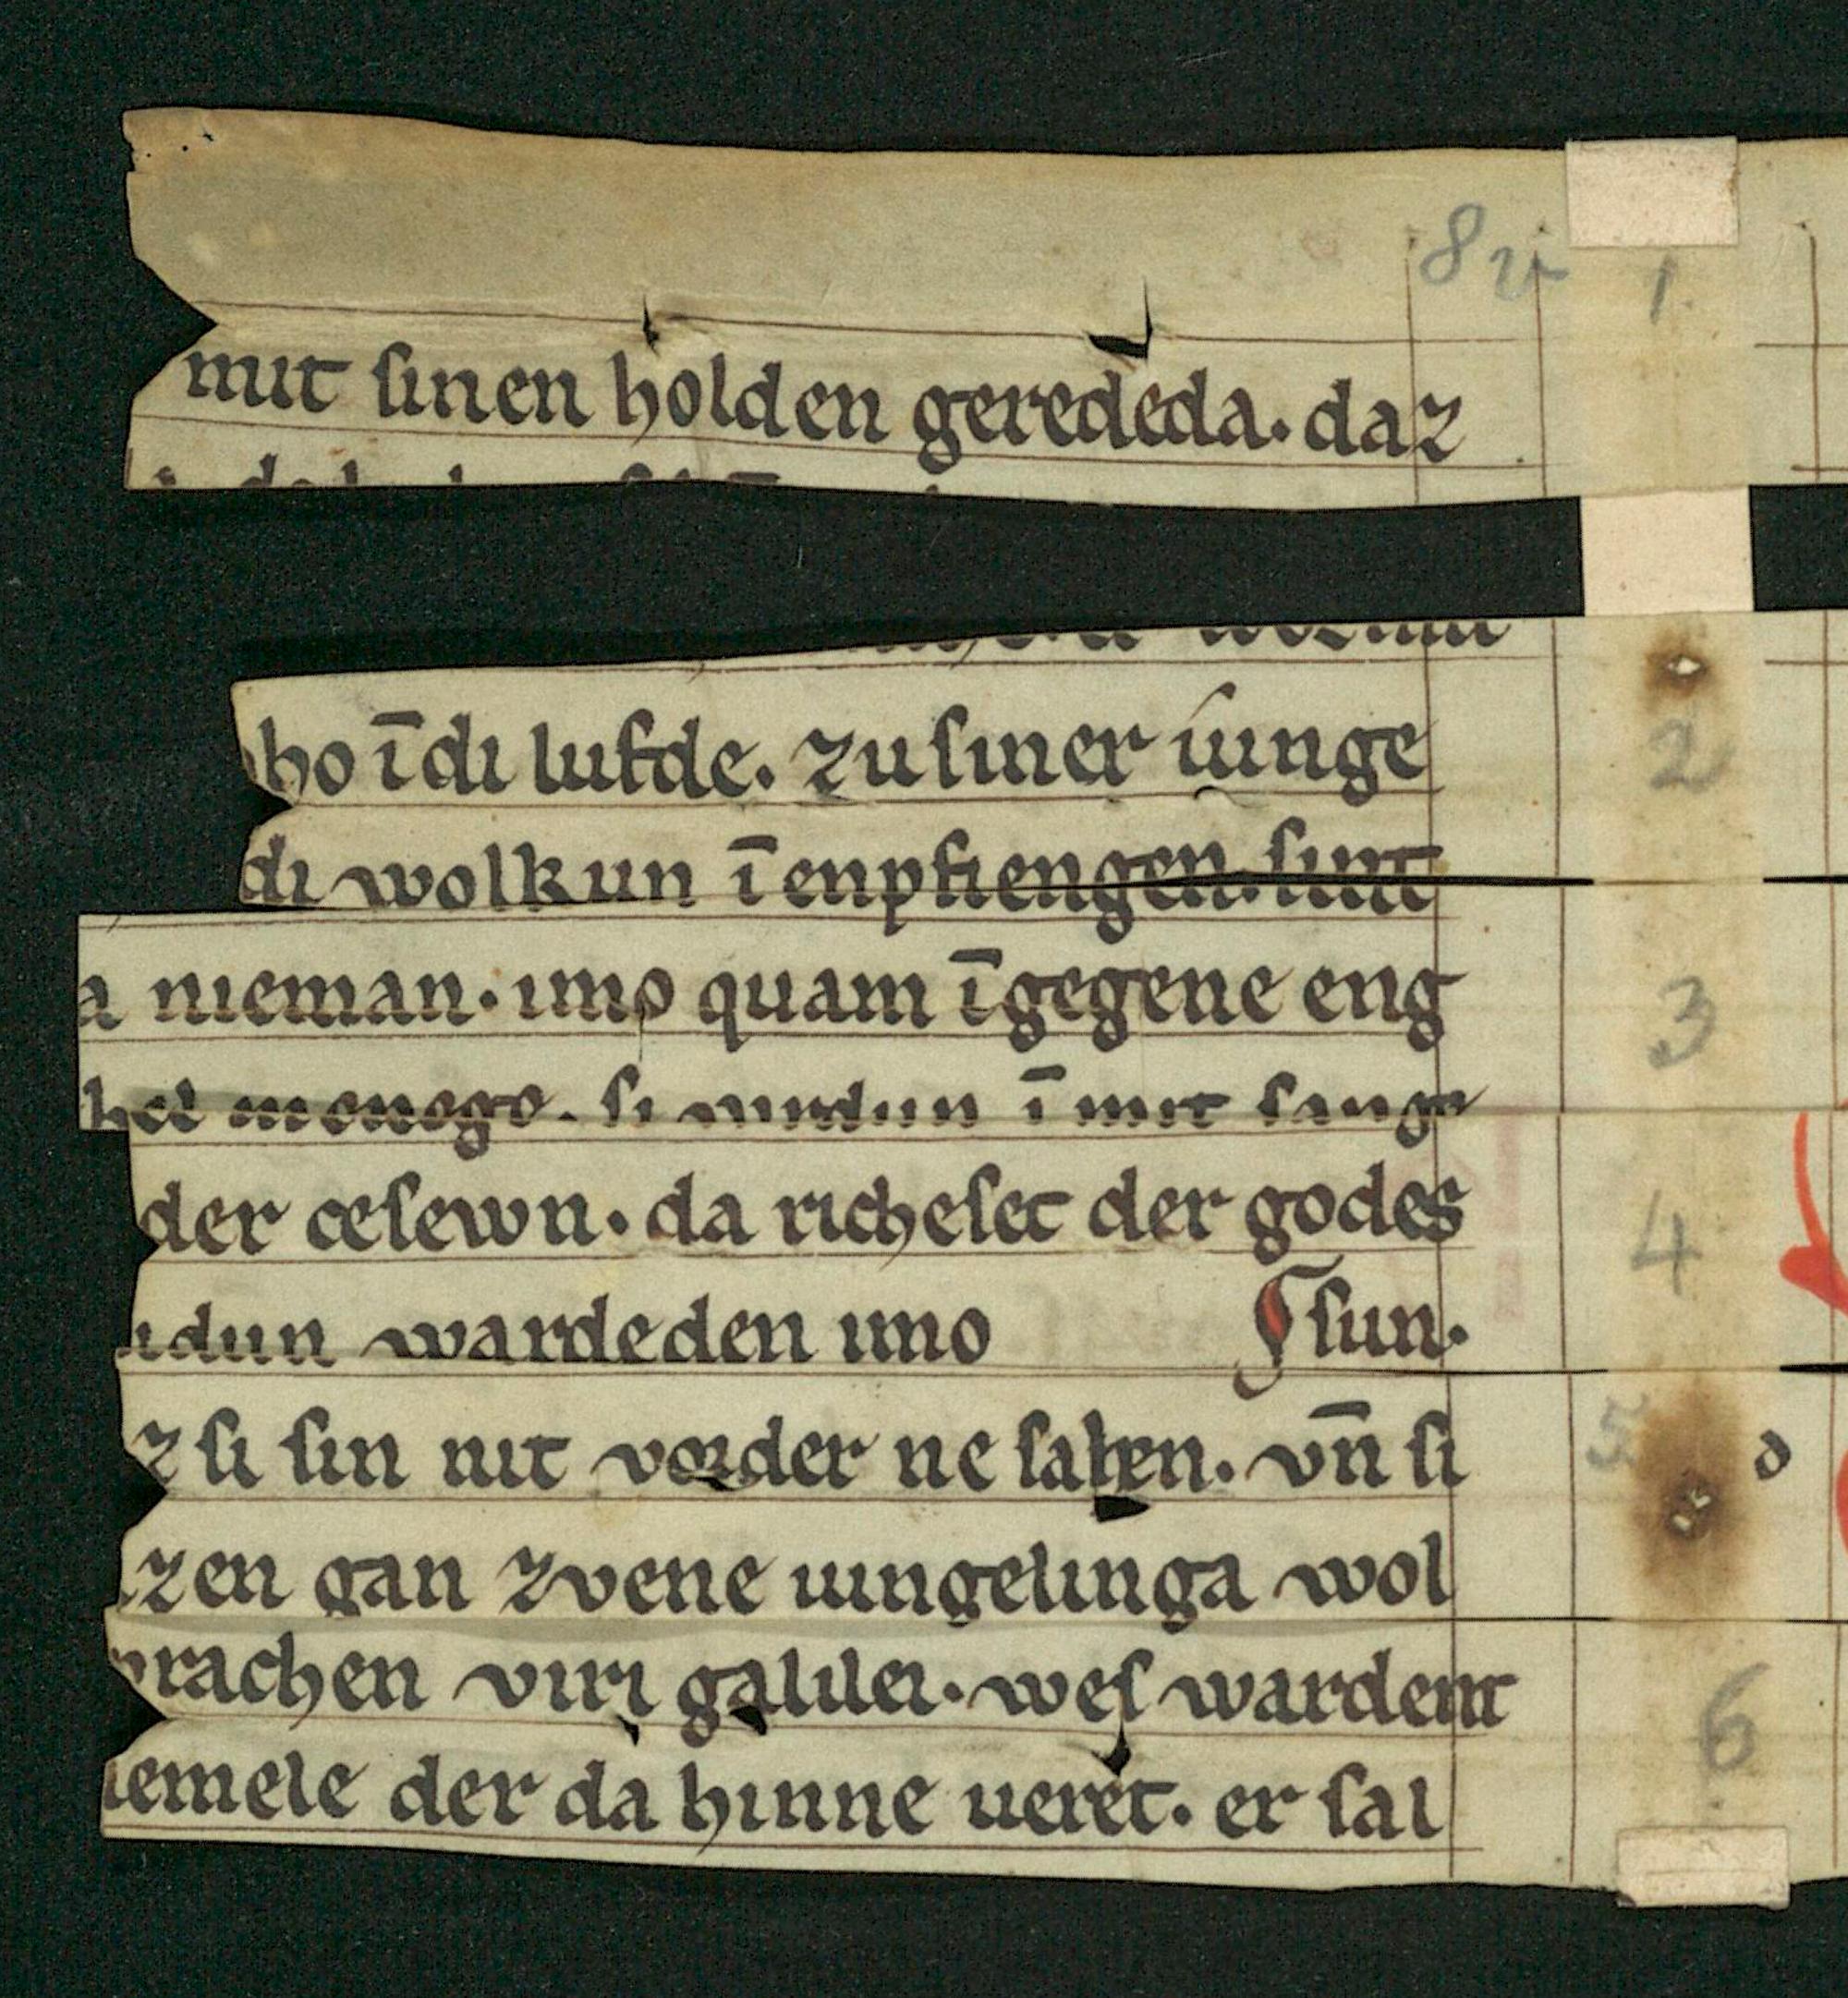 8v 1.
mit sinen holden gerededa. daz
ho īdi lufde. zu siner iunge
2
di wolkun ī enpfiengen. sint
a nieman. imo quam īgegene eng
3
hel menege. si vurdun ī mit sange
der cesewn. da richeset der godes
4
dun wardeden imo ſsun.
z si sin nit vorder ne sahen. vn̄ si
5 d
zen gan zvene iungelinga wol
rachen viri galilei. wes wardent
6
iemele der da hinne ueret. er sal